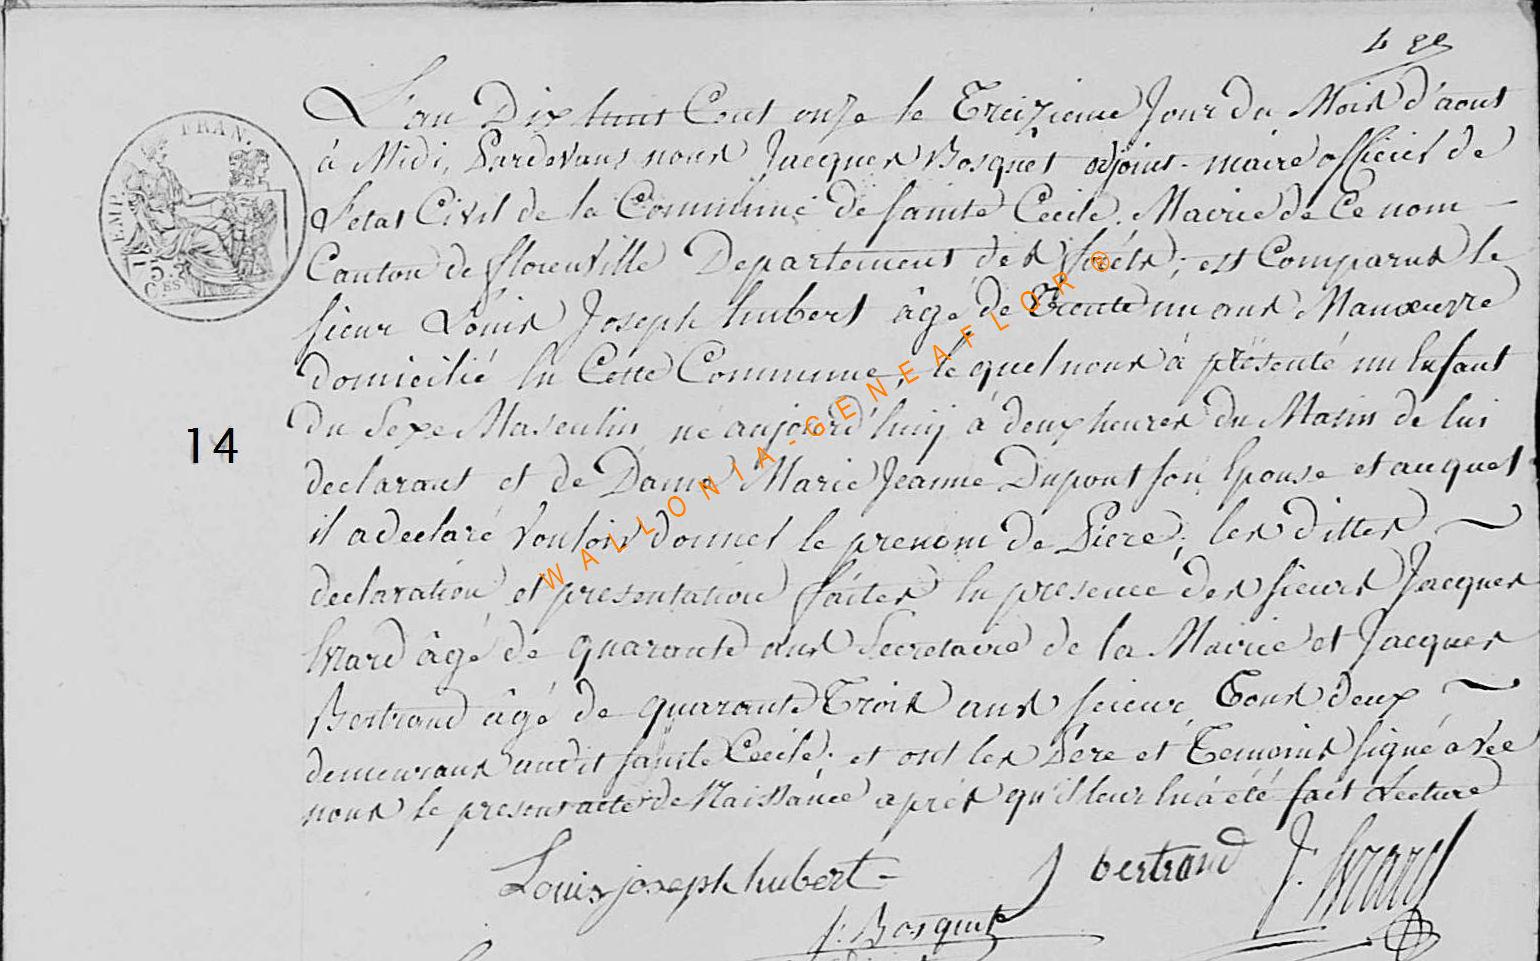 L'an Dix huit Cent onze le Treizieme Jour du Mois d'aout
à Midi, Pardevant nous Jacques Bosquet adjoint-maire officier de
L'etat Civil de la Commune de sainte Cecile. Mairie de Ce nom
Canton de florenville Departement des foréts; est Comparus le
sieur Louis Joseph hubert âgé de Trente un ans Manœuvre
domicilié En Cette Commune, le quel nous à présenté un Enfant
Du Sexe Masculin né aujourd'huy à deux heures du Matin de lui
declarant et de Dame Marie Jeanne Dupont son Epouse et auquel
il a declaré Vouloir donner le prenom de Piere; les dittes
declaration et presentation faites En presence des sieurs Jacques
Evrard âgé de quarante ans Secretaire de la Mairie et Jacques
Bertrand âgé de quarante Trois ans scieur Tous deux
demeurant audit sainte Cecile. et ont les Pere et Temoins signé avec
nous le present acte de Naissance aprés qu'il leur En à été fait Lecture
Louis joseph hubert
J bertrand
J. Evrard
J. Bosquet
EMP. FRAN.
75 C.
14
WALLONIA-GENEAFLOR ®